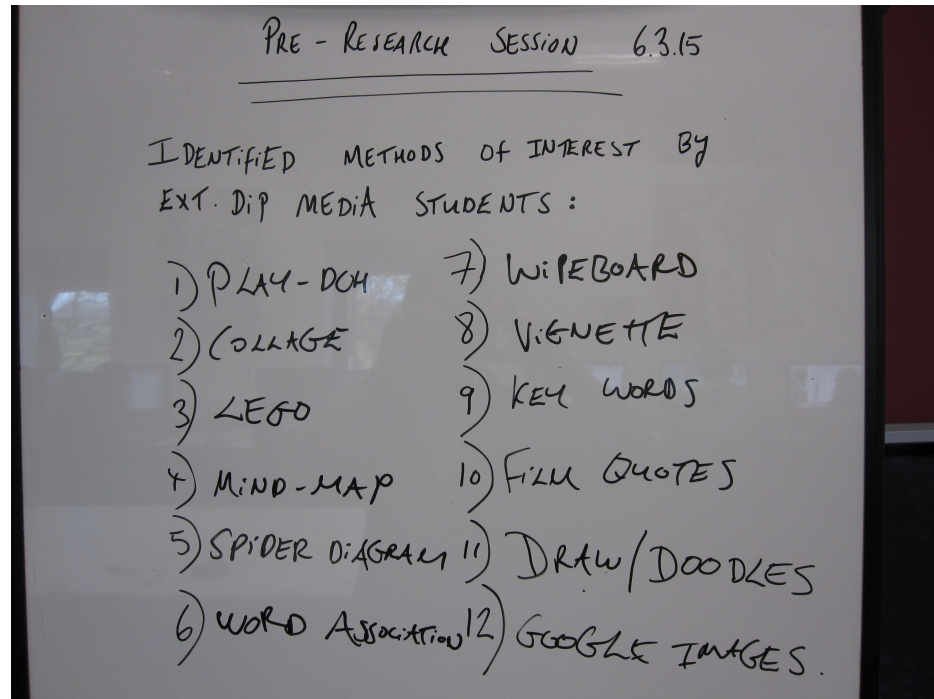 PRE - RESEARCH SESSION 6.3.15
IDENTIFIED METHODS OF INTEREST BY
EXT. DIP MEDIA STUDENTS :
1) PLAY-DOH
2) COLLAGE
3) LEGO
4) MIND-MAP
5) SPIDER DIAGRAM
6) WORD ASSOCIATION
7) WIPEBOARD
8) VIGNETTE
9) KEY WORDS
10) FILM QUOTES
11) DRAW/DOODLES
12) GOOGLE IMAGES.